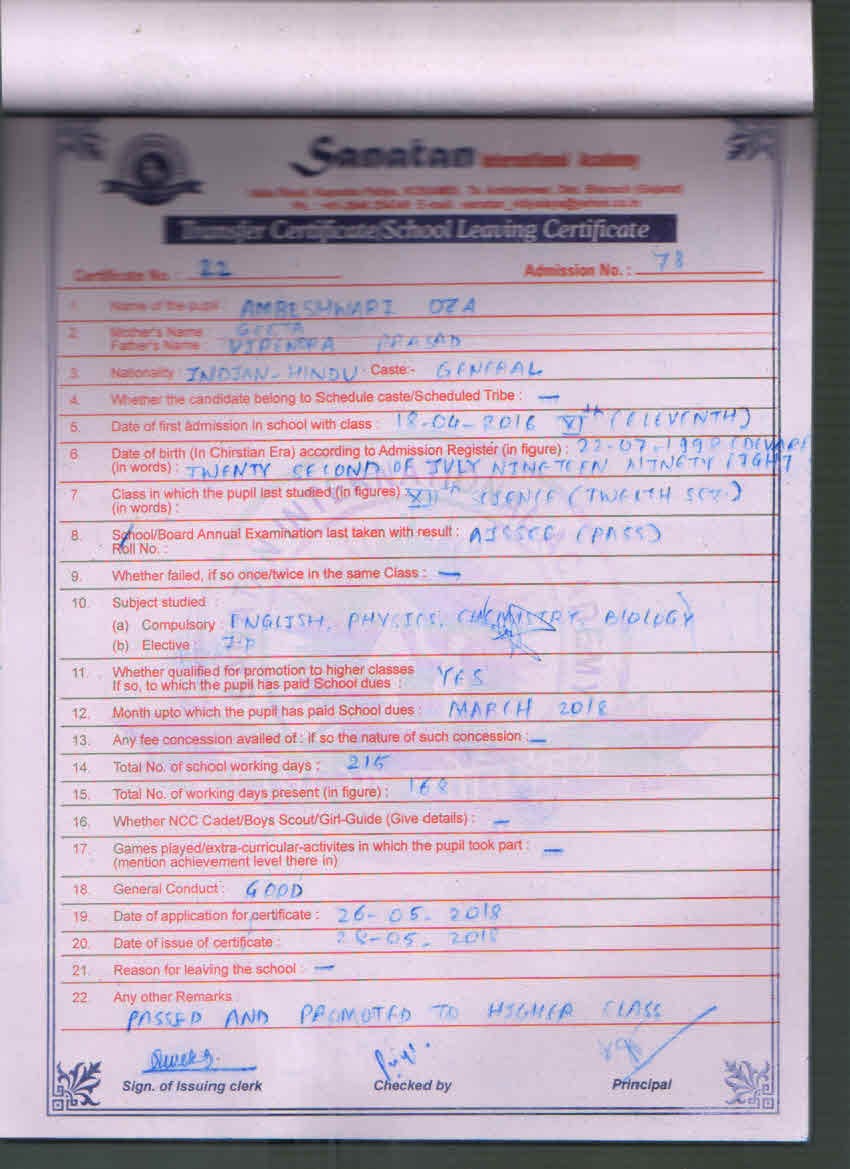 Sanatan International Academy
Transfer Certificate/School Leaving Certificate
Certificate No. : 22 Admission No. : 78
1. Name of the pupil : AMBESHWARI OZA
2. Mother's Name GEETA
Father's Name : VIRENDRA PRASAD
3. Nationality : INDIAN-HINDU Caste:- GENERAL
4. Whether the candidate belong to Schedule caste/Scheduled Tribe : —
5. Date of first admission in school with class : 18-04-2016 XIth (ELEVENTH)
6. Date of birth (In Chirstian Era) according to Admission Register (in figure) : 22-07-1998
(in words) : TWENTY SECOND OF JULY NINETEEN NINETY EIGHT
7. Class in which the pupil last studied (in figures) XIIth
(in words) :
8. School/Board Annual Examination last taken with result : AISSCE (PASS)
Roll No. :
9. Whether failed, if so once/twice in the same Class : —
10. Subject studied :
(a) Compulsory : ENGLISH, PHYSICS, CHEMISTRY, BIOLOGY
(b) Elective : I.P
11. Whether qualified for promotion to higher classes YES
If so, to which the pupil has paid School dues :
12. Month upto which the pupil has paid School dues : MARCH 2018
13. Any fee concession availed of : if so the nature of such concession : —
14. Total No. of school working days : 215
15. Total No. of working days present (in figure) : 168
16. Whether NCC Cadet/Boys Scout/Girl-Guide (Give details) : —
17. Games played/extra-curricular-activites in which the pupil took part : —
(mention achievement level there in)
18. General Conduct : GOOD
19. Date of application for certificate : 26-05-2018
20. Date of issue of certificate : 28-05-2018
21. Reason for leaving the school : —
22. Any other Remarks
PASSED AND PROMOTED TO HIGHER CLASS
Sign. of Issuing clerk Checked by Principal